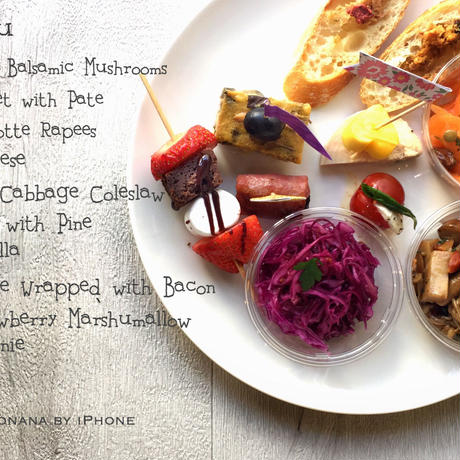 u
Balsamic Mushrooms
et with Pate
otte Rapees
eese
Cabbage Coleslaw
with Pine
lla
e Wrapped with Bacon
awberry Marshumallow
nie
onana by iPhone